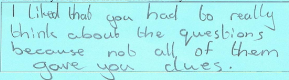 I liked that you had to really
think about the questions
because not all of them
gave you clues.